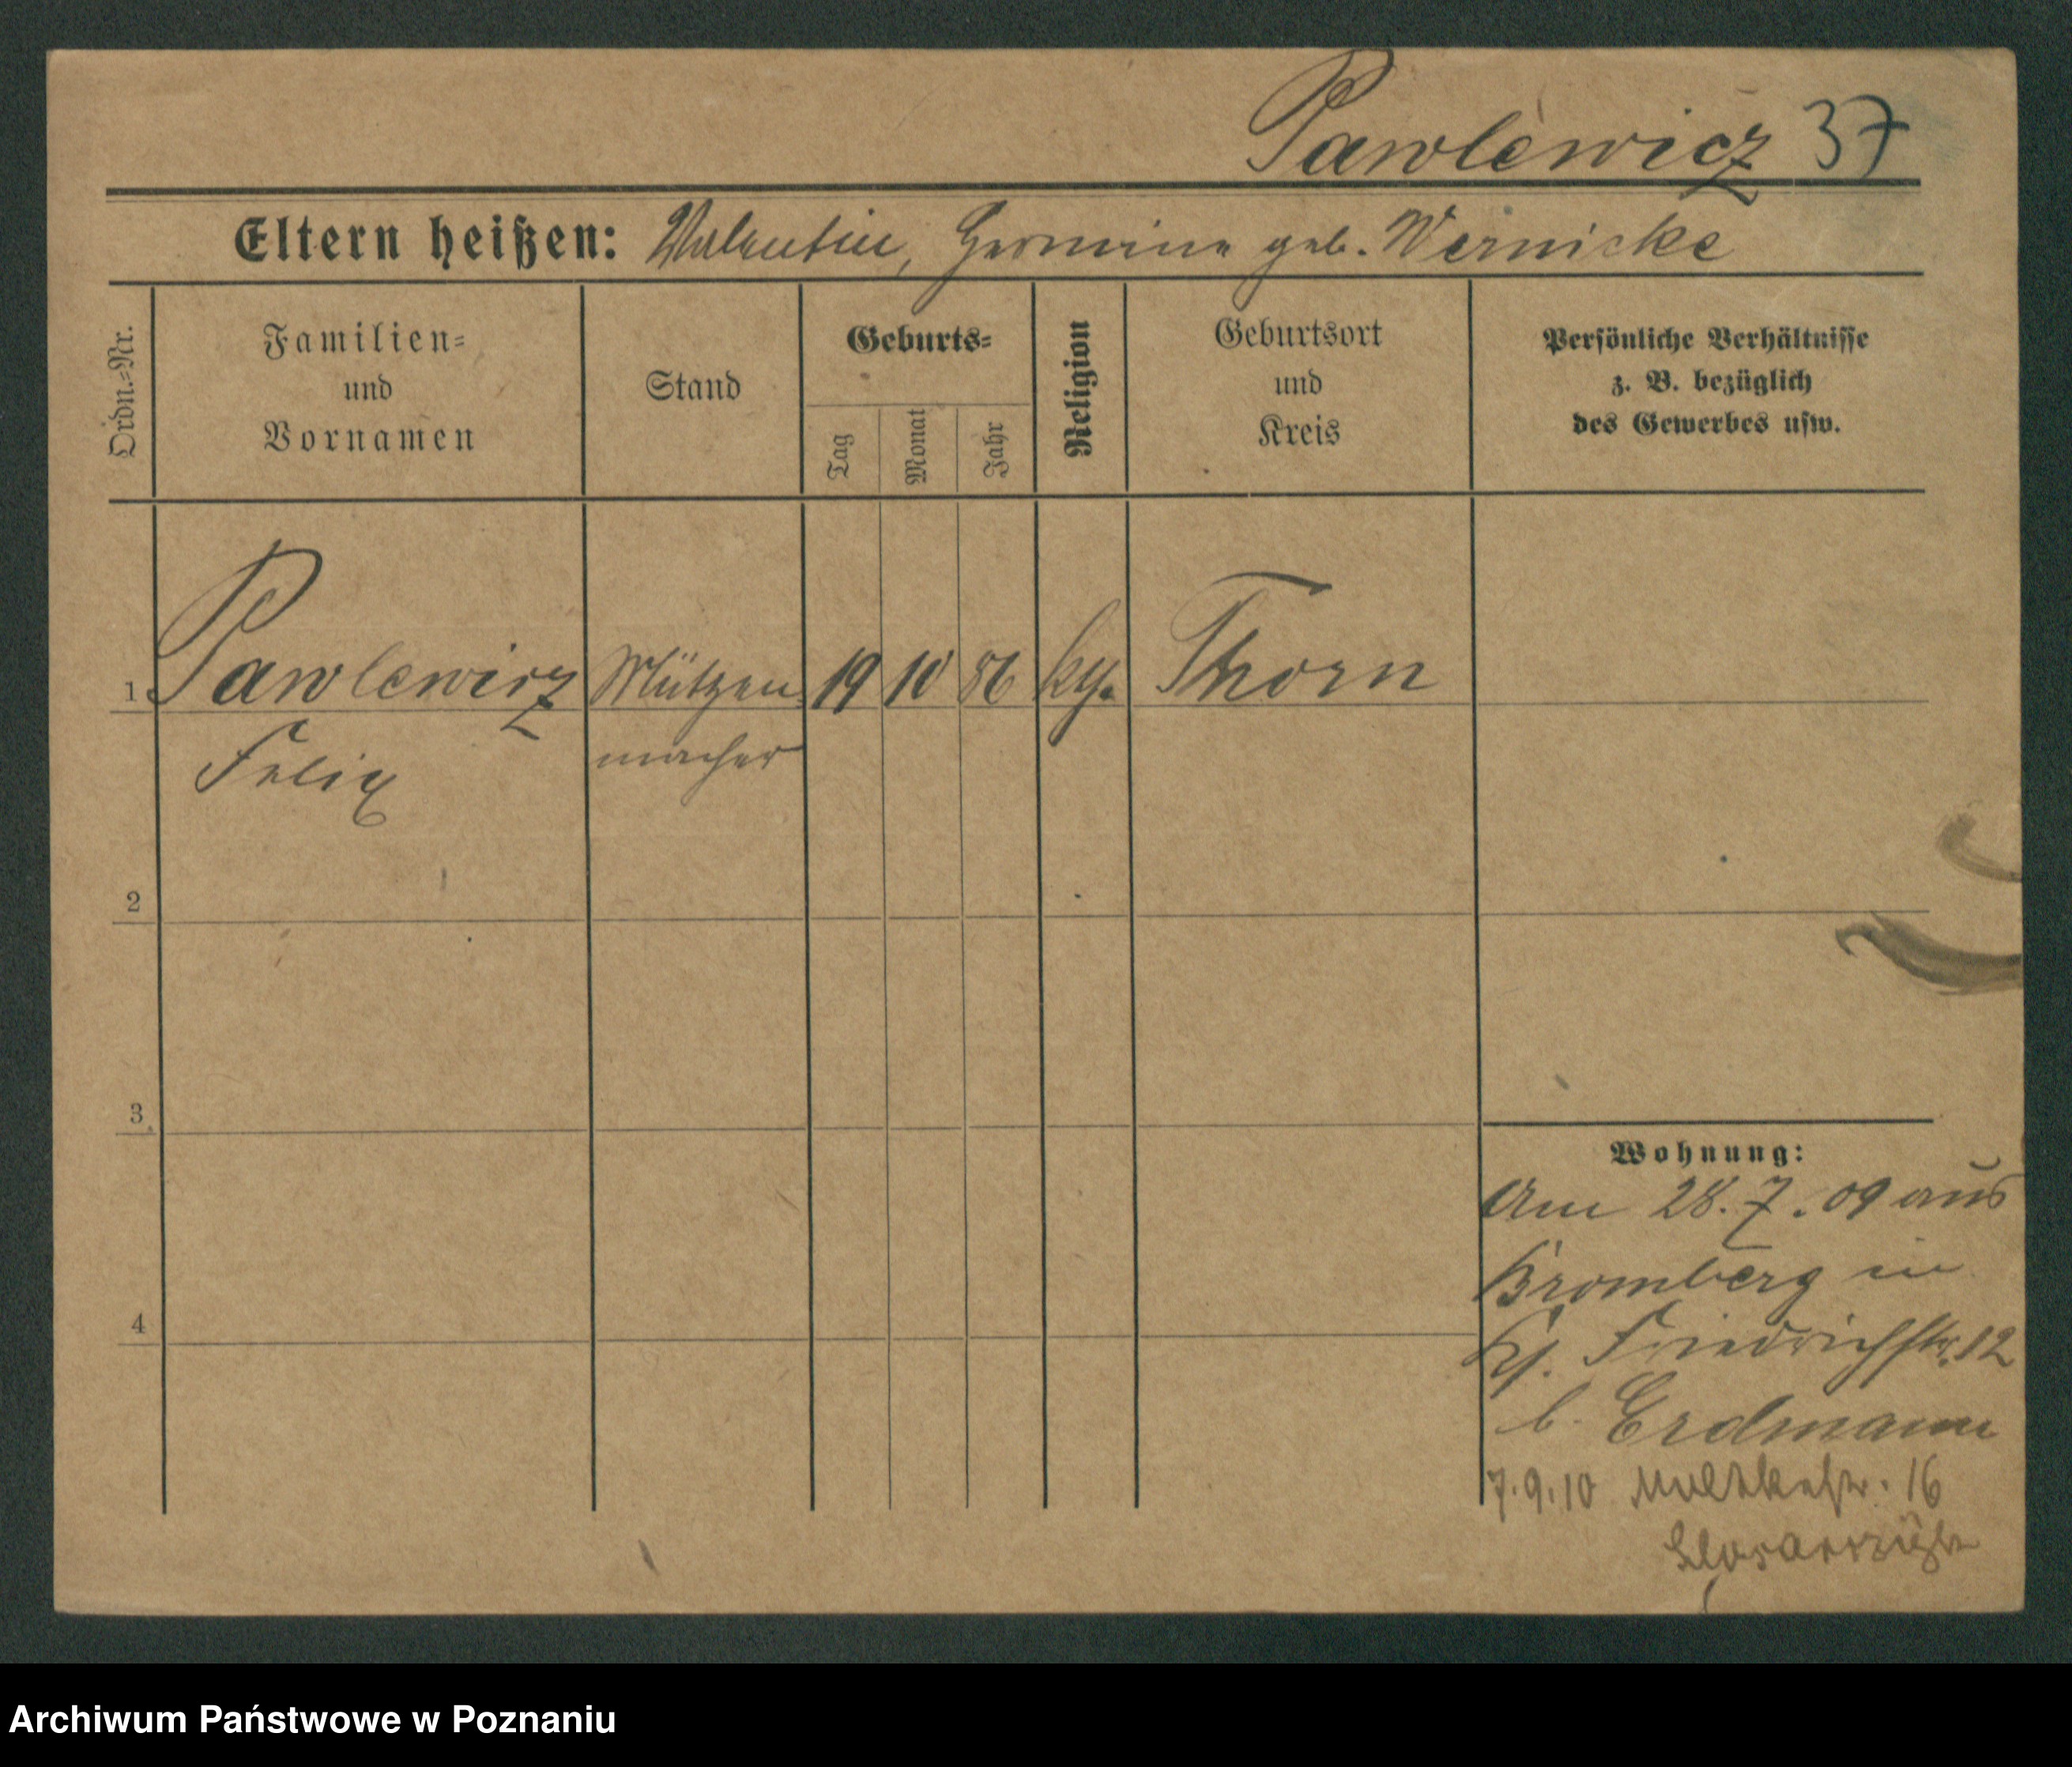 Pawlewicz 37
Eltern heißen: Valentin, Hermine geb. Wernicke
Ordn.=Nr.
Familien=
und
Vornamen
Stand
Geburts=
Tag
Monat
Jahr
Religion
Geburtsort
und
Kreis
Persönliche Verhältnisse
z. B. bezüglich
des Gewerbes usw.
1 Pawlewicz Mützen 19 10 86 Thorn
Felix macher
2
3
4
Wohnung:
Am 28. 7. 09 aus
Bromberg in
Friedrichstr. 12
b. Erdmann
7.9.10 Moltkestr. 16
Archiwum Państwowe w Poznaniu